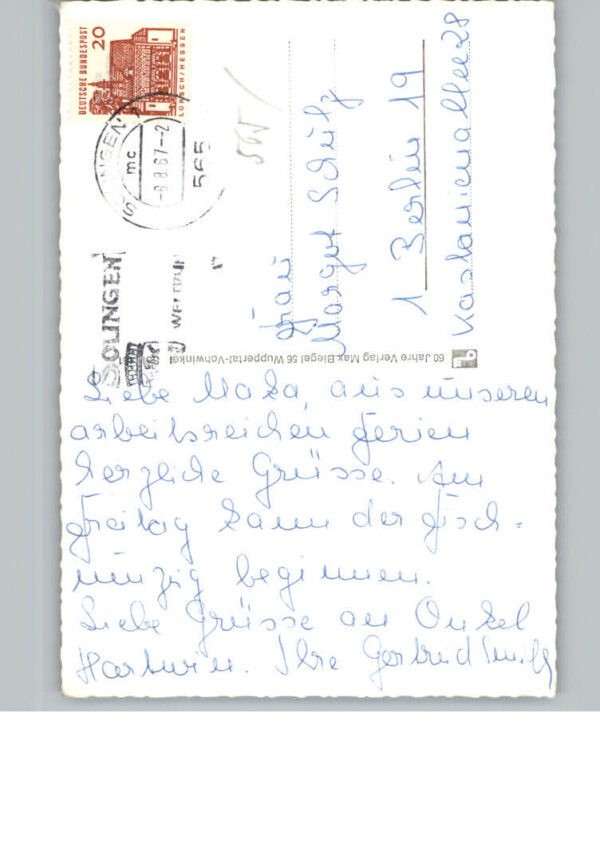 DEUTSCHE BUNDESPOST
20
LORSCH/HESSEN
SOLINGEN
mc
-8.8.67--2
565
SOLINGEN
Frau
Margot Schulz
1 Berlin 19
Kastanienallee 28
60 Jahre Verlag Max Biegel 56 Wuppertal-Vohwinkel
Liebe Maka, aus unseren
arbeitsreichen Ferien
herzliche Grüsse. Am
Freitag kann der Fisch-
einzug beginnen.
Liebe Grüsse an Onkel
Hartwin. Ihre Gertrud